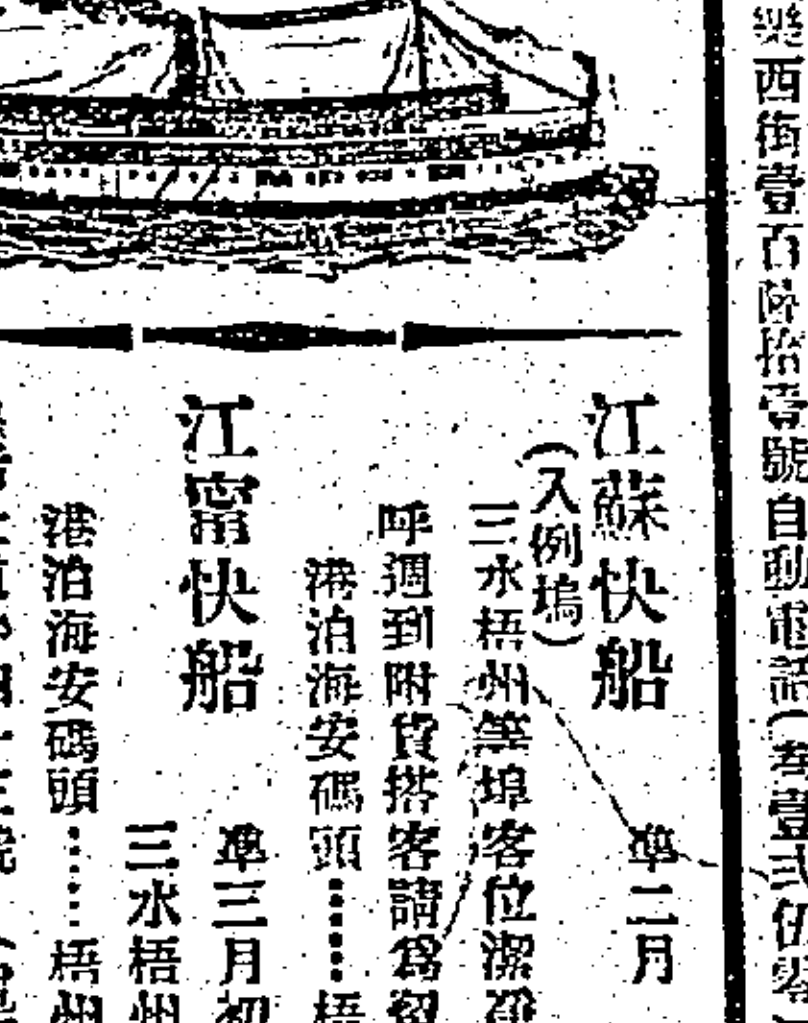 樂西街壹百陸拾壹號自動電話(叁壹弍伍零
江蘇快船 準二月
(入例塢)
三水梧州等埠客位潔
呼週到附貨搭客請為留
港泊海安碼頭⋯⋯梧
江甯快船 準三月初
三水梧州
港泊海安碼頭⋯⋯梧州